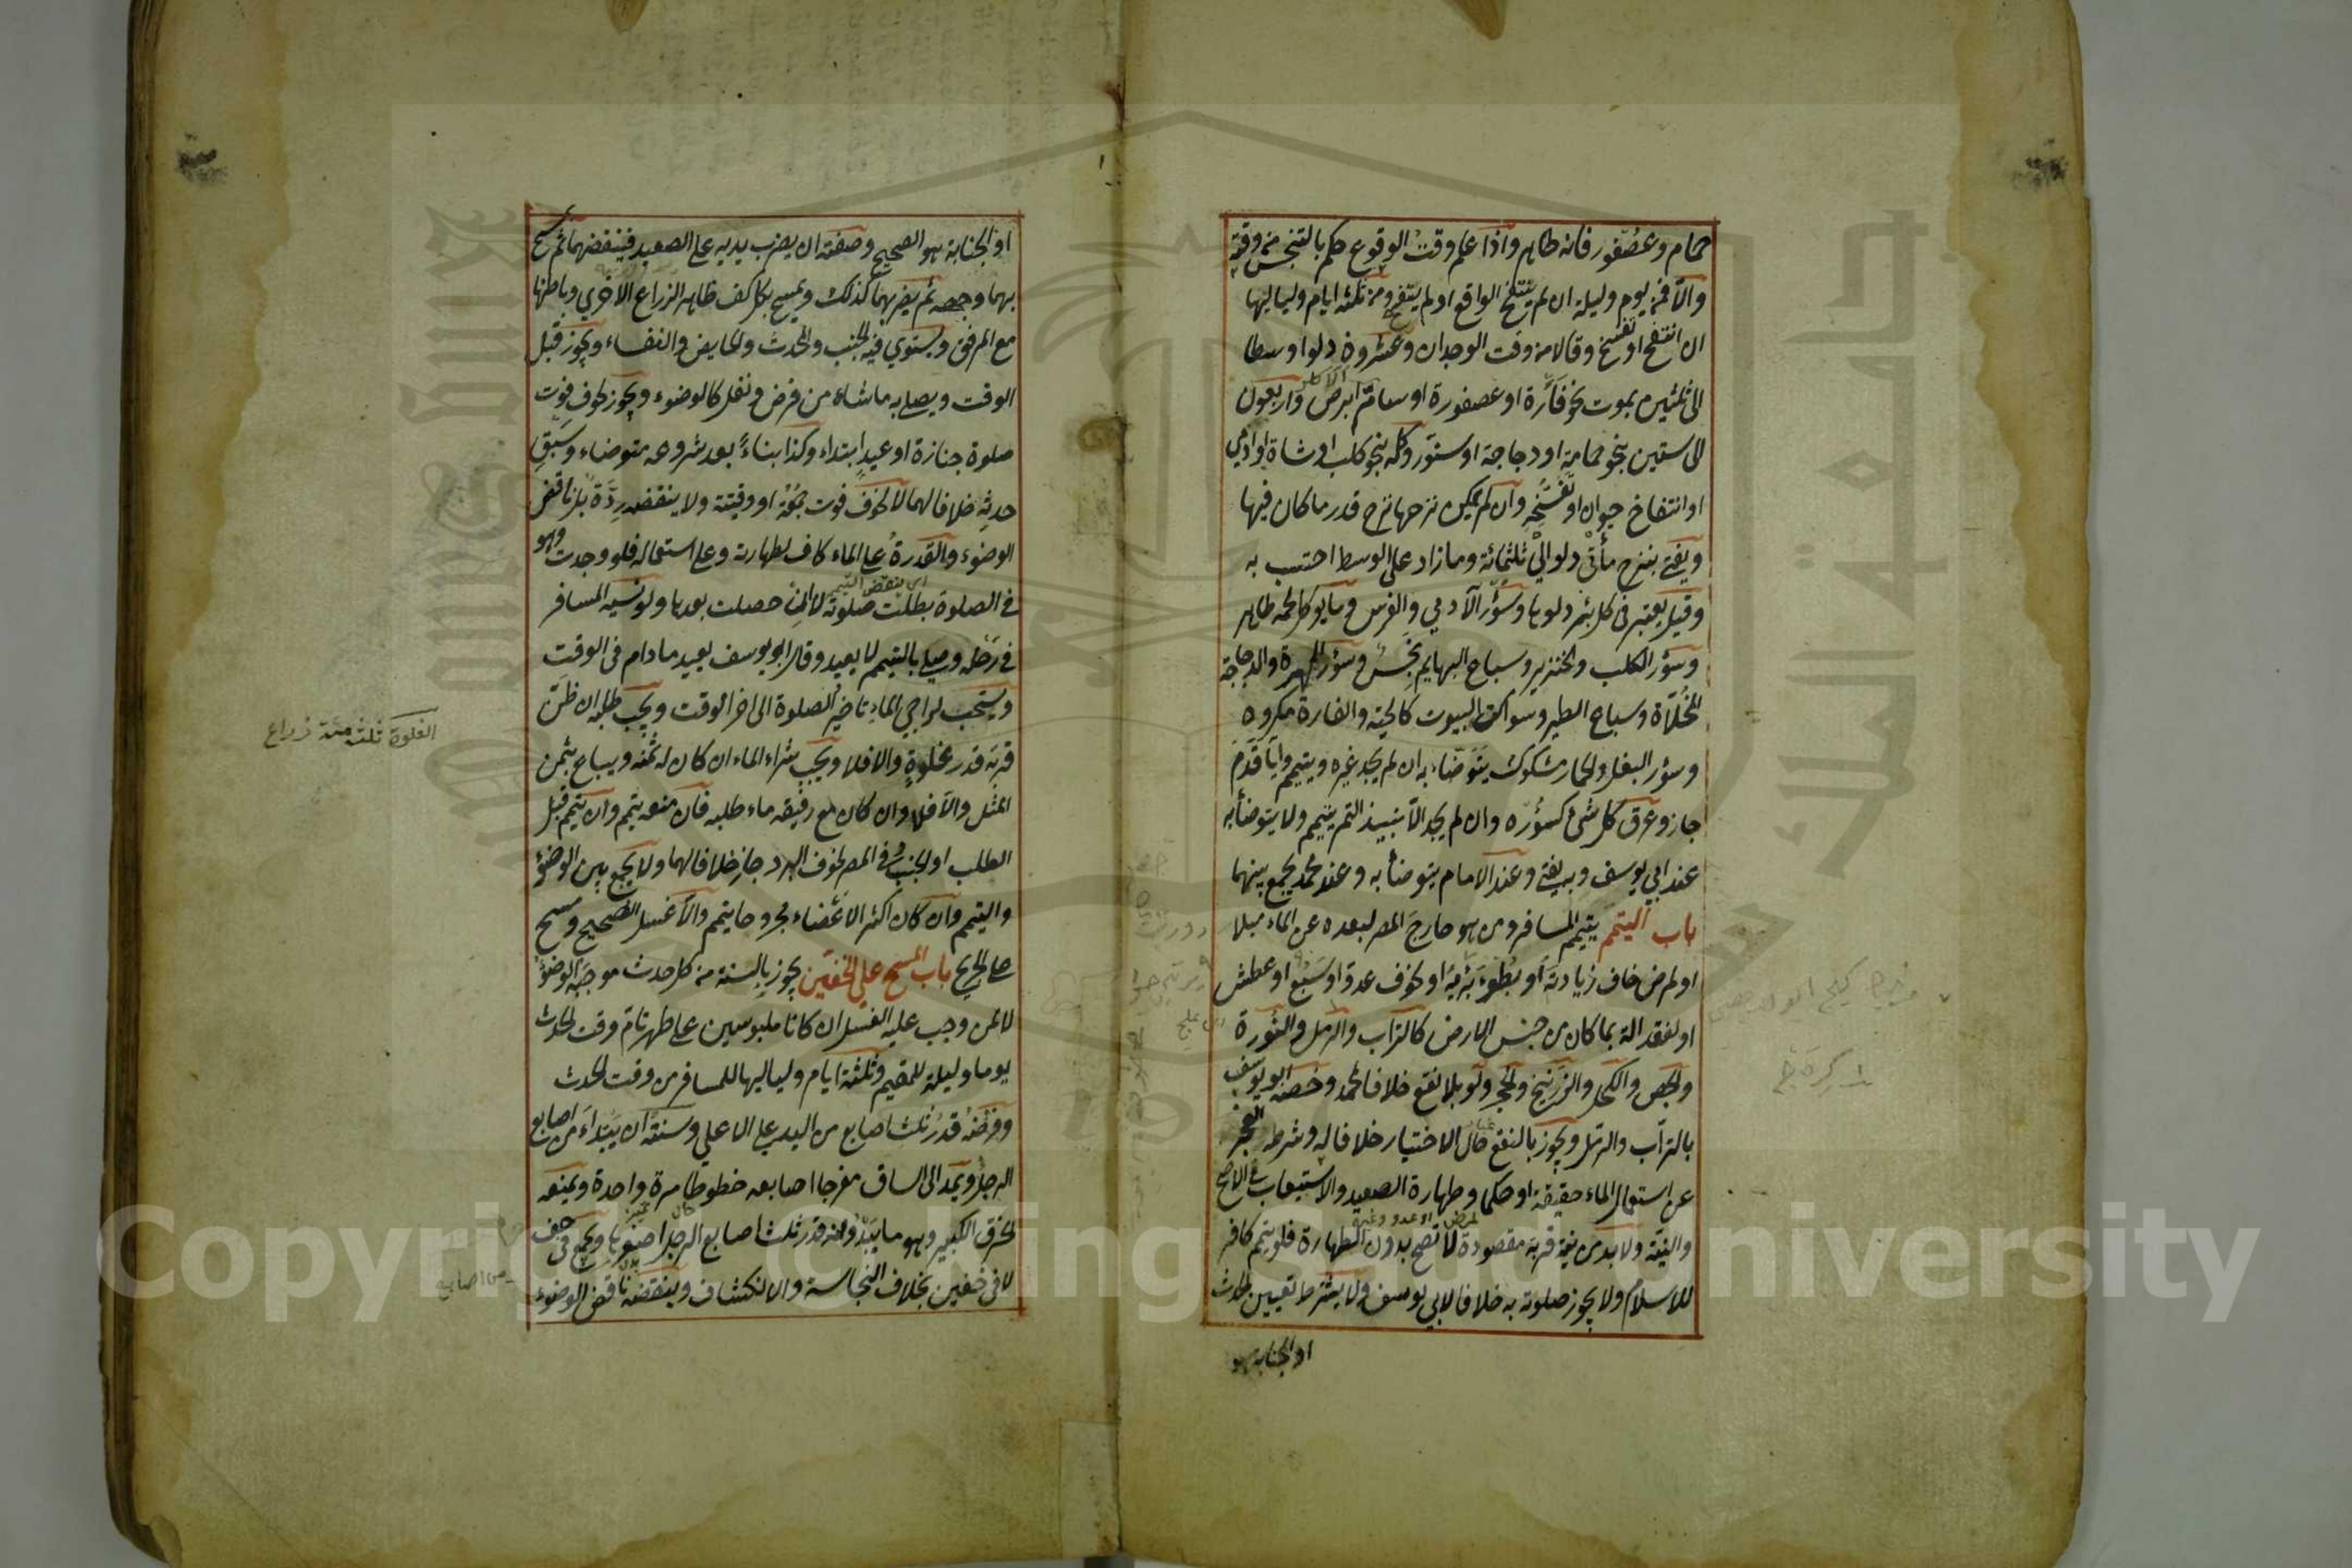 حمام وعصفور فانه طاهر واذا علم وقت الوقوع حكم بالتنجس من وقته
والا فمن يوم وليلة ان لم ينتفخ الواقع او لم يتفسخ ومن ثلثة ايام ولياليها
ان انتفخ او تفسخ وقالا من وقت الوجدان وعشرون دلوا وسطا
الى ثلثين بموت نحو فأرة او عصفورة او سام ابرص واربعون
الى ستين بنحو حمامة او دجاجة او سنور وكله بنحو كلب او شاة او ادمي
او انتفاخ حيوان او تفسخه وان لم يمكن نزحها نزح قدر ما كان فيها
ويفتى بنزح مأتي دلو الى ثلثمائة وما زاد على الوسط احتسب به
وقيل يعتبر في كل بئر دلوها وسؤر الآدمي والفرس وما يؤكل لحمه طاهر
وسؤر الكلب والخنزير وسباع البهايم نجس وسؤر الهرة والدجاجة
المخلاة وسباع الطير وسواكن البيوت كالحية والفارة مكروه
وسؤر البغل والحمار مشكوك يتوضاء به ان لم يجد غيره ويتيمم وايا قدم
جاز وعرق كل شئ كسؤره وان لم يجد الا نبيذ التمر يتيمم ولا يتوضأ به
عند ابي يوسف وبه يفتى وعند الامام يتوضأ به وعند محمد يجمع بينهما
باب التيمم يتيمم المسافر ومن هو خارج المصر لبعده عن الماء ميلا
او لمرض خاف زيادته او بطوء برئه او لخوف عدو او سبع او عطش
او لفقد الة بما كان من جنس الارض كالتراب والرمل والنورة
والجص والكحل والزرنيخ والحجر ولو بلا نقع خلافا لمحمد وخصه ابو يوسف
بالتراب والرمل ويجوز بالنقع حال الاختيار خلافا له وشرطه العجز
عن استعمال الماء حقيقة او حكما وطهارة الصعيد والاستيعاب في الاصح
لمرض او عدو وغيره
والنية ولا بد من نية قربة مقصودة لا تصح بدون الطهارة فلو تيمم كافر
للاسلام ولا يجوز صلوته به خلافا لابي يوسف ولا يشترط تعيين الحدث
او الجنابة هو
او الجنابة هو الصحيح وصفته ان يضرب يديه على الصعيد فينفضهما ثم يمسح
بهما وجهه ثم يضربهما كذلك ويمسح بكل كف ظاهر الذراع الاخري وباطنها
مع المرفق ويستوي فيه الجنب والمحدث والحايض والنفساء ويجوز قبل
الوقت ويصلي به ما شاء من فرض ونفل كالوضوء ويجوز لخوف فوت
صلوة جنازة او عيد ابتداء وكذا بناء بعد شروعه متوضاء وسبق
حدثه خلافا لهما لا لخوف فوت جمعة او وقتية ولا ينقضه ردة بل ناقض
الوضوء والقدرة على الماء كاف لطهارته وعلى استعماله فلو وجدت وهو
اي ينقض التيمم
في الصلوة بطلت صلوته لا ان حصلت بعدها ولو نسيه المسافر
في رحله وصلى بالتيمم لا يعيد وقال ابو يوسف يعيد ما دام في الوقت
ويستحب لراجي الماء تاخير الصلوة الى اخر الوقت ويجب طلبه ان ظن
قربه قدر غلوة والا فلا ويجب شراء الماء ان كان له ثمنه ويباع بثمن
الغلوة ثلثه مئة ذراع
المثل والا فلا وان كان مع رفيقه ماء طلبه فان منعه يتيمم وان تيمم قبل
الطلب او الجنب في المصر لخوف البرد جاز خلافا لهما ولا يجمع بين الوضوء
والتيمم وان كان اكثر الاعضاء مجروحا يتيمم والا غسل الصحيح ومسح
على الجريح باب المسح على الخفين يجوز بالسنة من كل حدث موجبه الوضوء
لا لمن وجب عليه الغسل ان كانا ملبوسين على طهر تام وقت الحدث
يوما وليلة للمقيم وثلثة ايام ولياليها للمسافر من وقت الحدث
وفرضه قدر ثلث اصابع من اليد على الاعلى وسنته ان يبتداء من اصابع
الرجل ويمد الى الساق مفرجا اصابعه خطوطا مرة واحدة ويمنعه
الخرق الكبير وهو ما يبدو منه قدر ثلث اصابع الرجل اصغرها ويجمع في خف
لا في خفين بخلاف النجاسة والانكشاف وينقضه ناقض الوضوء
Copyright © King Saud University